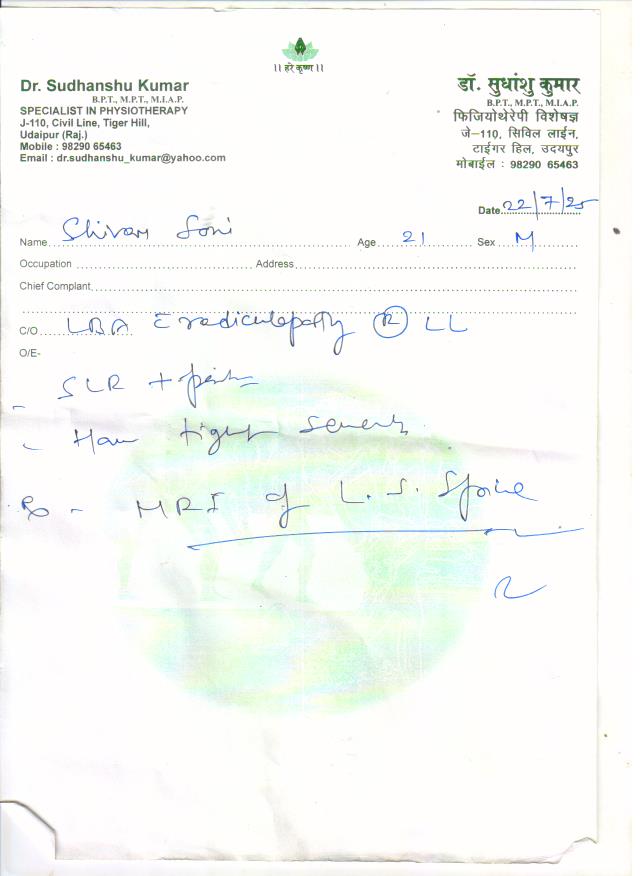 ।। हरे कृष्ण ।।
Dr. Sudhanshu Kumar
B.P.T., M.P.T., M.I.A.P.
SPECIALIST IN PHYSIOTHERAPY
J-110, Civil Line, Tiger Hill,
Udaipur (Raj.)
Mobile : 98290 65463
Email : dr.sudhanshu_kumar@yahoo.com
डॉ. सुधांशु कुमार
B.P.T., M.P.T., M.I.A.P.
फिजियोथेरेपी विशेषज्ञ
जे-110, सिविल लाईन,
टाईगर हिल, उदयपुर
मोबाईल : 98290 65463
Date 22/7/25
Name Shivam Soni Age 21 Sex M
Occupation Address
Chief Complant
C/O LBA c radiculopathy R LL
O/E-
- SLR +
- Ham tight
- MRI of L.S. Spine